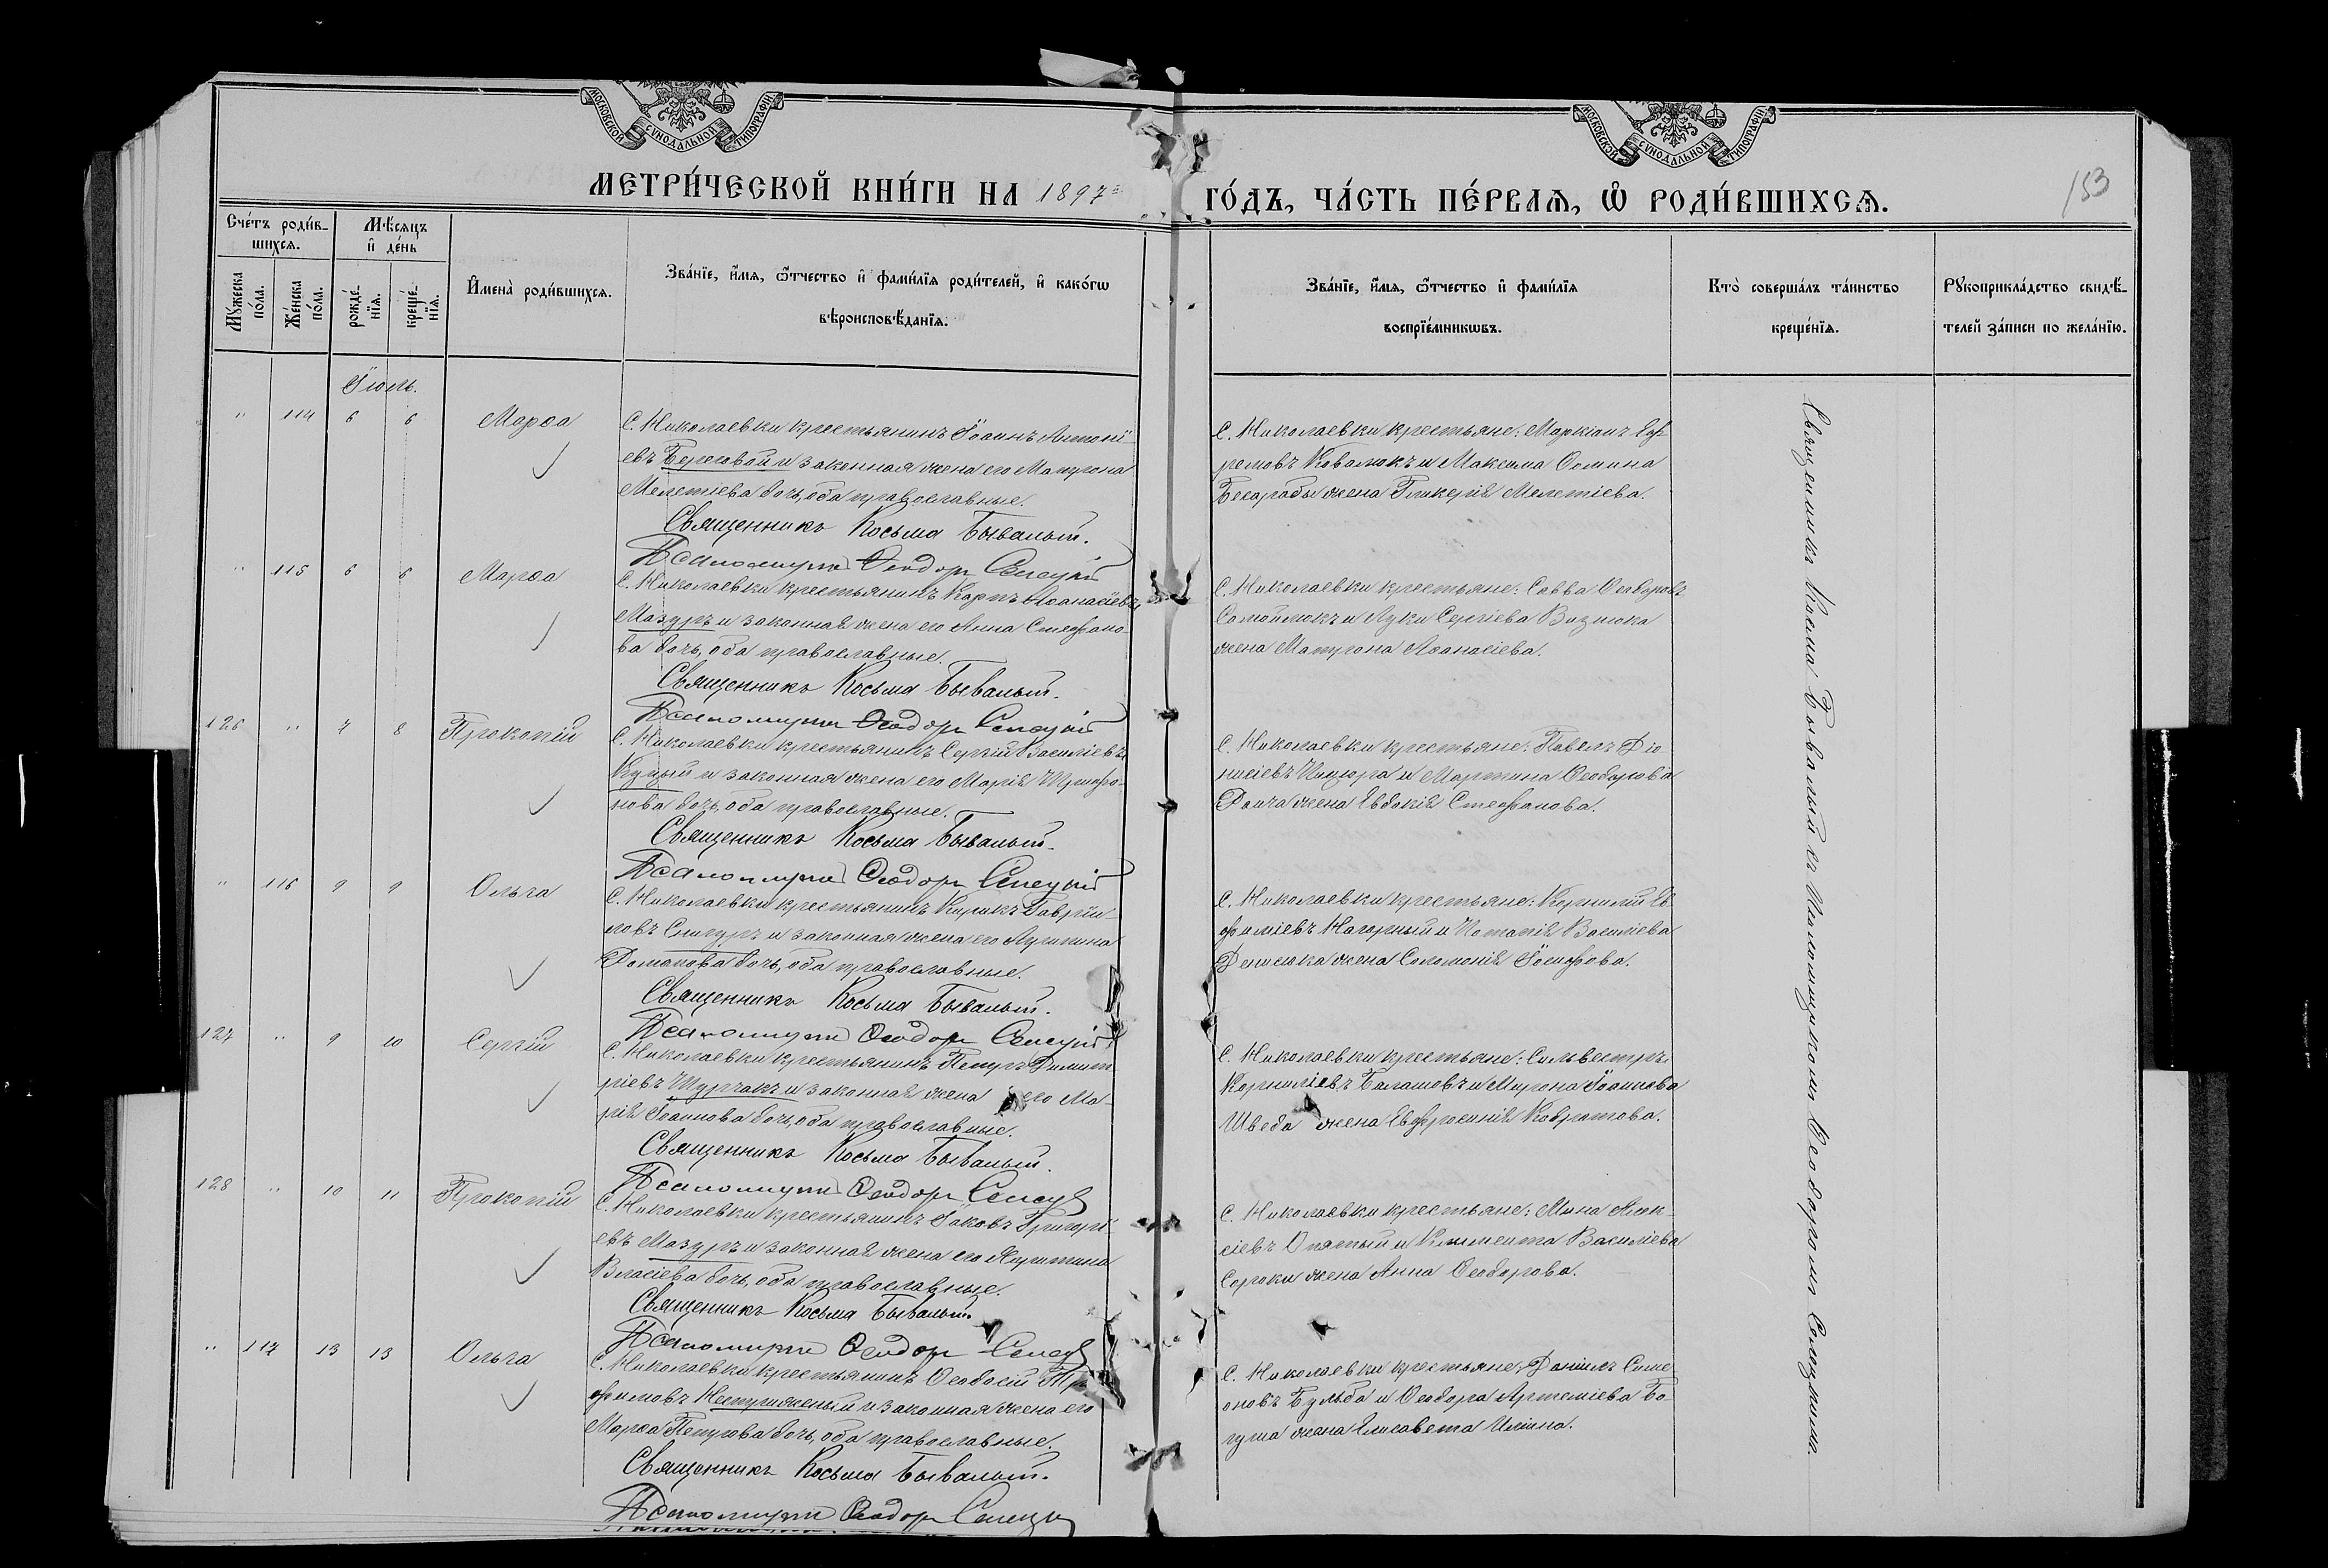 МОСКОВСКОЙ СУНОДАЛЬНОЙ ТИПОГРАФІИ
МОСКОВСКОЙ СУНОДАЛЬНОЙ ТИПОГРАФІИ
МЕТРИ́ЧЕСКОЙ КНИ́ГИ НА 1897 ГО́ДЪ, ЧА́СТЬ ПЕ́РВАЯ, Ѡ РОДИ́ВШИХСЯ.
153
Сче́тъ роди́в-
шихся.
Мѣсяцъ
и де́нь
Мꙋжеска по́ла.
Же́нска по́ла.
рожде́нїя.
креще́нїя.
Имена̀ роди́вшихся.
Зва́нїе, и́мя, ѿтчество и фами́лїя роди́телей, и како́гѡ
вѣроисповѣданїя.
Зва́нїе, и́мя, ѿтчество и фами́лїя
воспрїе́мникѡвъ.
Кто̀ соверша́лъ та́инство
креще́нїя.
Рꙋкоприкла́дство свидѣ-
телей за́писи по жела́нїю.
Іюль.
" 114 6 6 Марѳа
С. Николаевки крестьянинъ Іоаннъ Антоні-
евъ Береговой и законная жена его Матрона
Мелетіева дочь, оба православные.
Священникъ Косьма Бывалый.
Псаломщикъ Ѳеодоръ Селецкій
С. Николаевки крестьяне: Маркіанъ Еф-
ремовъ Ковалюкъ и Максима Ѳомина
Бесарабы жена Гликерія Мелетіева.
" 115 6 6 Марѳа
С. Николаевки крестьянинъ Карпъ Аѳанасіевъ
Мазуръ и законная жена его Анна Стефано-
ва дочь, оба православные.
Священникъ Косьма Бывалый.
Псаломщикъ Ѳеодоръ Селецкій
С. Николаевки крестьяне: Савва Ѳеодоровъ
Самойлюкъ и Луки Сергіева Вознюка
жена Матрона Аѳанасіева.
126 " 7 8 Прокопій
С. Николаевки крестьянинъ Сергій Василіевъ
Куцый и законная жена его Марія Трифо-
нова дочь, оба православные.
Священникъ Косьма Бывалый.
Псаломщикъ Ѳеодоръ Селецкій
С. Николаевки крестьяне: Павелъ Діо-
нисіевъ и Мартина Ѳеодорова
жена Евдокія Стефанова.
" 116 9 9 Ольга
С. Николаевки крестьянинъ Кирикъ Гавріи-
ловъ Снигуръ и законная жена его
Романова дочь, оба православные.
Священникъ Косьма Бывалый.
Псаломщикъ Ѳеодоръ Селецкій
С. Николаевки крестьяне: Корнилій Ев-
фиміевъ Нагорный и Потапія Василіева
Денисюка жена Соломонія Іосифова.
127 " 9 10 Сергій
С. Николаевки крестьянинъ Петръ Димит-
ріевъ Шурчакъ и законная жена его Ма-
рія Іоаннова дочь, оба православные.
Священникъ Косьма Бывалый.
Псаломщикъ Ѳеодоръ
С. Николаевки крестьяне: Сильвестръ
Корниліевъ Балашовъ и Мирона Іоаннова
Шведа жена Евфросинія Кодратова.
128 " 10 11 Прокопій
С. Николаевки крестьянинъ Іаковъ Григорі-
евъ Мазуръ и законная жена его Іустина
Власіева дочь, оба православные.
Священникъ Косьма Бывалый.
Псаломщикъ Ѳеодоръ
С. Николаевки крестьяне: Мина Алек-
сіевъ Опятый и Климента Василіева
Сороки жена Анна Ѳеодорова.
" 117 13 13 Ольга
С. Николаевки крестьянинъ Ѳеодосій Тро-
фимовъ и законная жена его
Марѳа Петрова дочь, оба православные.
Священникъ Косьма Бывалый.
Псаломщикъ Ѳеодоръ
С. Николаевки крестьяне: Даніилъ Симе-
оновъ Бульба и Ѳеодора Артеміева Бо-
гуша жена Елисавета Ильина.
Священникъ Косьма Бывалый съ Псаломщикомъ Ѳеодоромъ Селецкимъ.